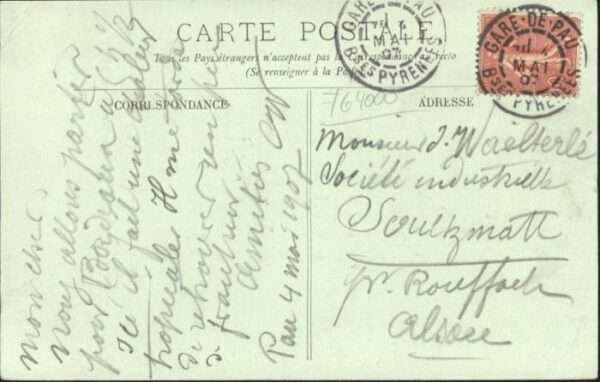 CARTE POSTALE
Tous les Pays étrangers n'acceptent pas la Correspondance au recto
(Se renseigner à la Poste)
CORRESPONDANCE
ADRESSE
764000
GARE-DE-PAU
MAI
07
BSES PYRÉNÉES
GARE-DE-PAU
MAI
07
BSES PYRÉNÉES
Mon cher,
Nous allons partir
pour Bordeaux à
Ici il fait une chaleur
tropicale. Il me tarde
de retrouver un peu
de fraicheur
Amitiés
Pau 4 mai 1907
Monsieur J. Waelterlé
Société industrielle
Soultzmatt
pr. Rouffach
Alsace